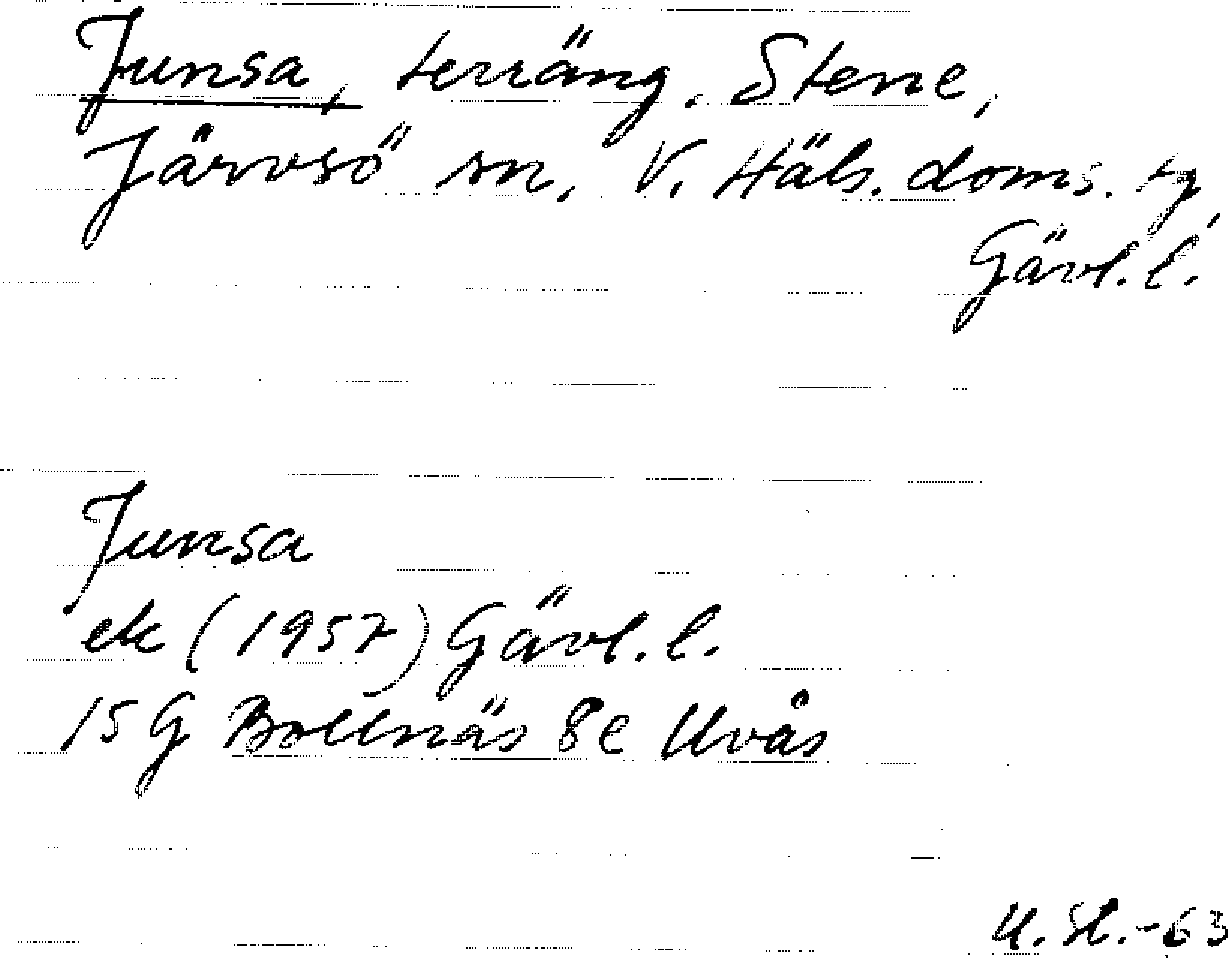 Junsa, terräng. Stene,
Järvsö sn, V. Häls. doms. tg,
Gävl. l.
Junsa
ek (1957) Gävl. l.
15 G Bollnäs 8e Uvås
U. Sl. -63